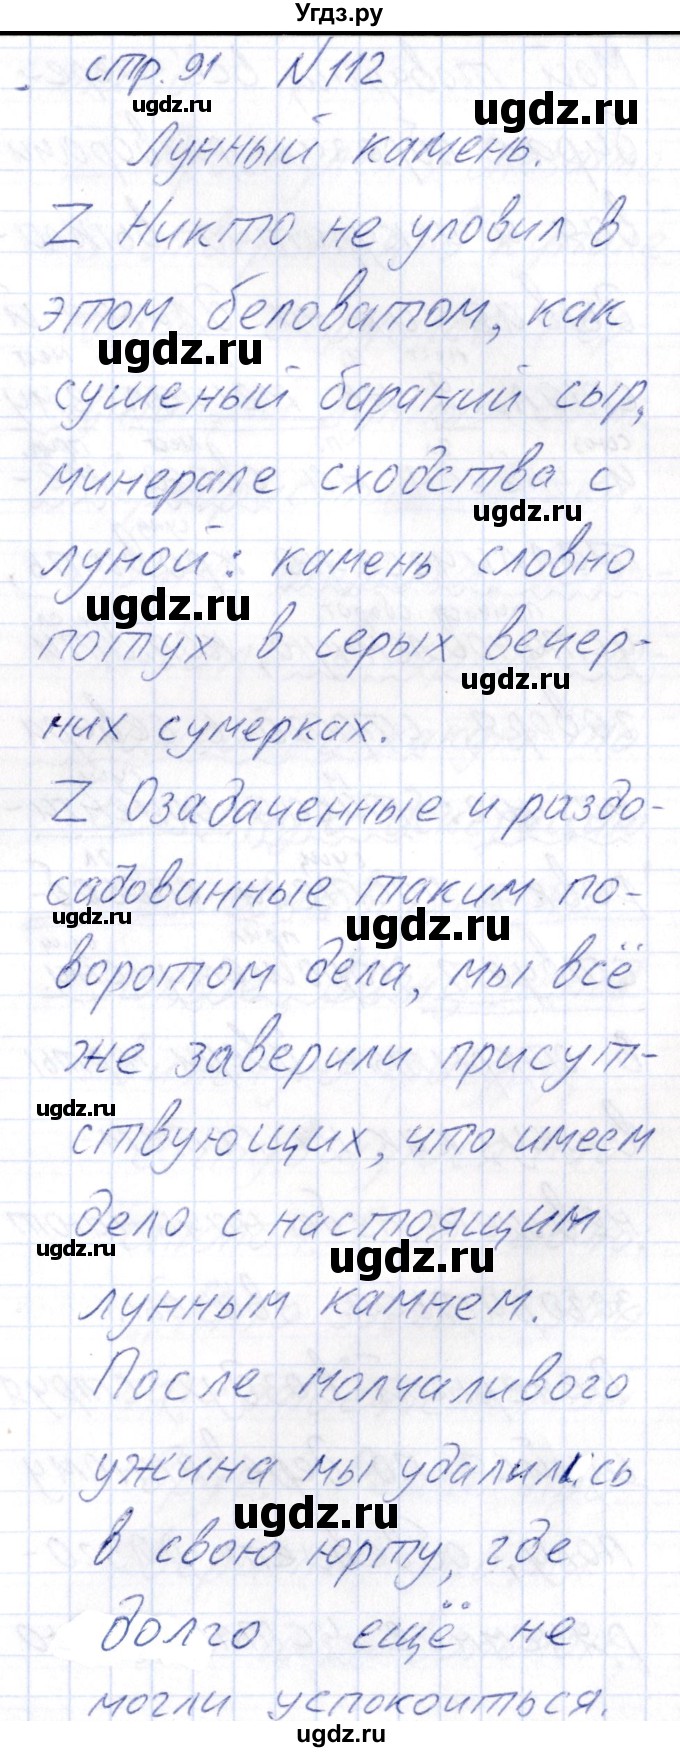 Угдз.ру
стр. 91 №112
ugdz.ru
ugdz.ru
Лунный камень.
Z Никто не уловил в
этом беловатом, как
ugdz.ru
сушеный бараний сыр,
минерале сходства с
ugdz.ru
луной: камень словно
ugdz.ru
потух в серых вечер-
ugdz.ru
них сумерках.
Z Озадаченные и раздо-
садованные таким по-
ugdz.ru
ugdz.ru
воротом дела, мы всё
же заверили присут-
ugdz.ru
ствующих, что имеем
дело с настоящим
ugdz.ru
ugdz.ru
лунным камнем.
После молчаливого
ужина мы удалились
ugdz.ru
в свою юрту, где
долго ещё не
могли успокоиться.
ugdz.ru